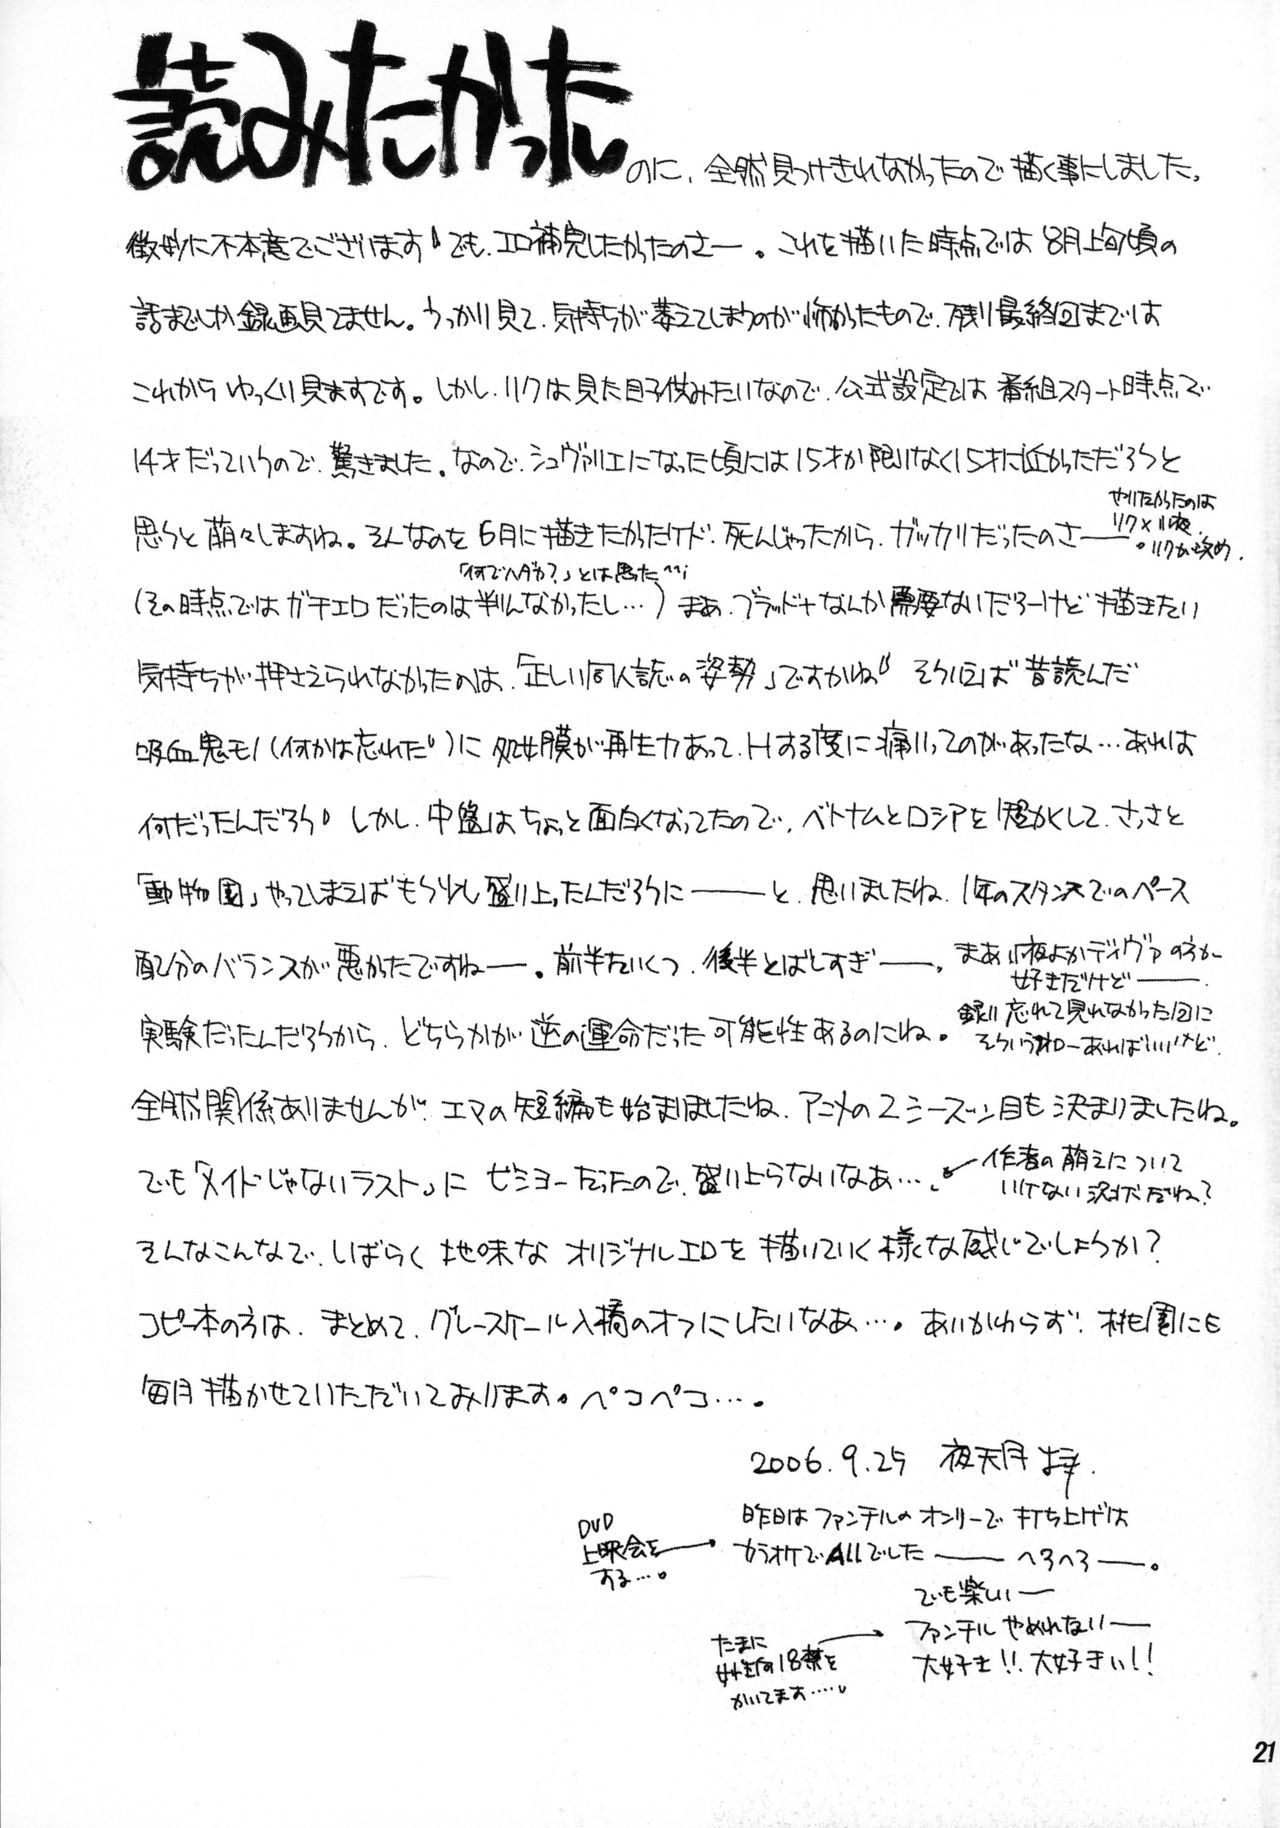 読みたかったのに、全然見つけきれなかったので描く事にしました。
微妙に不本意でございます でも、エロ補完したかったのさー。これを描いた時点では8月上旬頃の
話までしか録画見てません。うっかり見て、気持ちが萎えてしまうのが怖かったもので、残り最終回までは
これからゆっくり見ますです。しかし、リクは見た目子供みたいなので、公式設定では番組スタート時点で
14才だっていうので、驚きました。なので、シュヴァリエになった頃には15才か限りなく15才に近かっただろうと
思うと萌々しますね。そんなのを6月に描きたかったケド、死んじゃったから、ガッカリだったのさー。
やりたかったのは
リク×小夜。
リクが攻め。
「何でハダカ?」とは思った^^;
(その時点ではガチエロだったのは判んなかったし…)まあ、ブラッド+なんか需要ないだろーけど描きたい
気持ちが押さえられなかったのは、「正しい同人誌の姿勢」ですかね そういえば昔読んだ
吸血鬼モノ(何かは忘れた)に処女膜が再生力あって、Hする度に痛いってのがあったな…あれは
何だったんだろう しかし、中盤はちょっと面白くなってたので、ベトナムとロシアを短かくして、さっさと
「動物園」やってしまえばもう少し盛り上ったんだろうに――と、思いましたね、1年のスタンスでのペース
配分のバランスが悪かったですねー。前半たいくつ、後半とばしすぎー。
まあ小夜よかディヴァの方が
好きだけどー。
実験だったんだろうから、どちらかが逆の運命だった可能性あるのにね。
録り忘れて見れなかった回に
そういうネローあればいいけど。
全然関係ありませんが、エマの短編も始まりましたね、アニメの2シーズン目も決まりましたね。
でも「メイドじゃないラスト」にビミョーだったので、盛り上らないなあ…。
作者の萌えについて
いけない状況だね?
そんなこんなで、しばらく地味なオリジナルエロを描いていく様な感じでしょうか?
コピー本の方は、まとめて、グレースケール入稿のオフにしたいなあ…。あいかわらず、桃園にも
毎月描かせていただいております。ペコペコ…。
2006.9.25 夜天月 拝.
昨日はファンチルのオンリーで打ち上げは
カラオケでAllでした――へろへろー。
DVD
上映会を
する…。
でも楽しいー
ファンチルやめれないー
大好き!!大好きぃ!!
たまに
女性向18禁を
かいてます……。
21